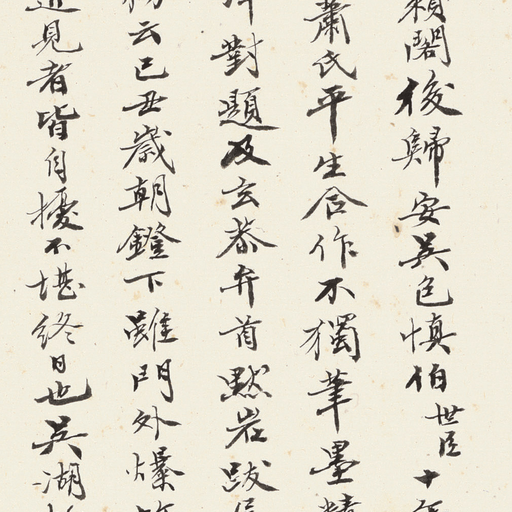 賴閣後歸安吳包慎伯世臣十年
蕭氏平生合作不獨筆墨精
對題及玄恭弁首默岩跋
云己丑歲朝鐙下雖門外爆竹
見者皆自擾不堪終日也吳湖帆